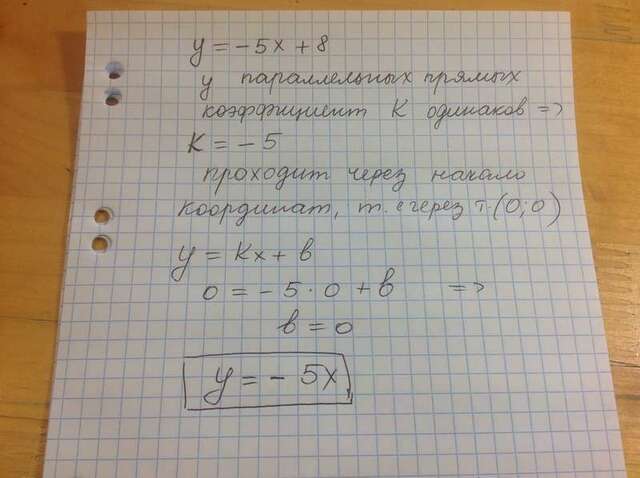 y = -5x + 8
у параллельных прямых
коэффициент K одинаков =>
K = -5
проходит через начало
координат, т.е через т.(0;0)
y = Kx + b
0 = -5·0 + b =>
b = 0
y = -5x